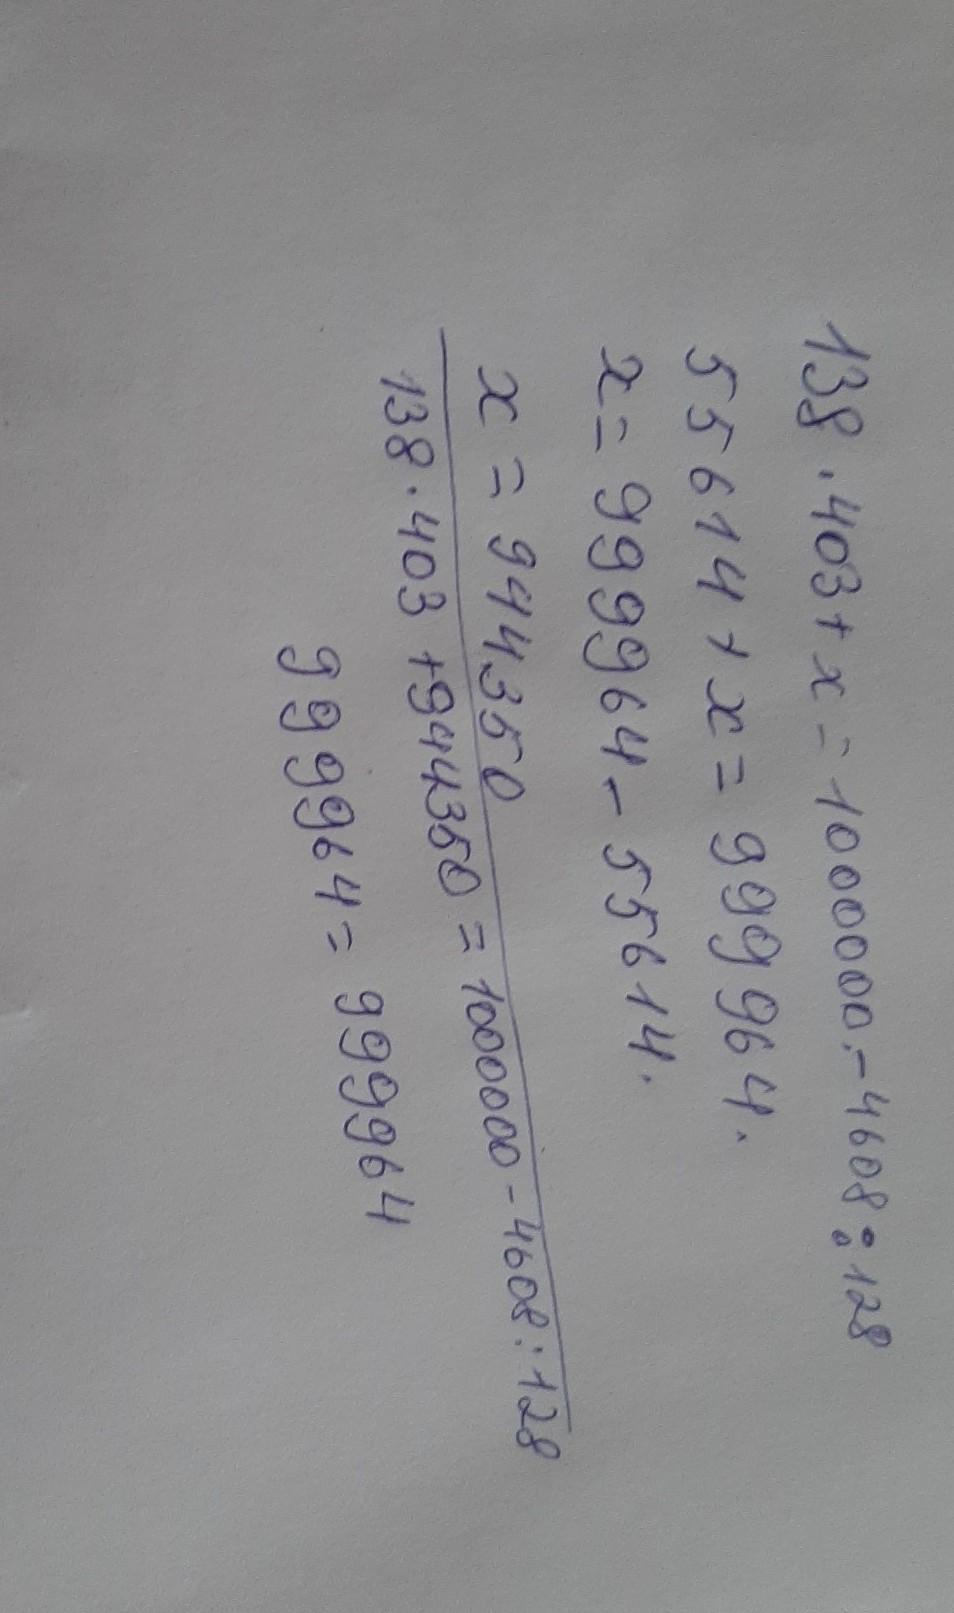 138 · 403 + x = 1000000. - 4608 : 128
55614 + x = 999964.
x = 999964 - 55614.
x = 944350
138 · 403 + 944350 = 1000000 - 4608 : 128
999964 = 999964